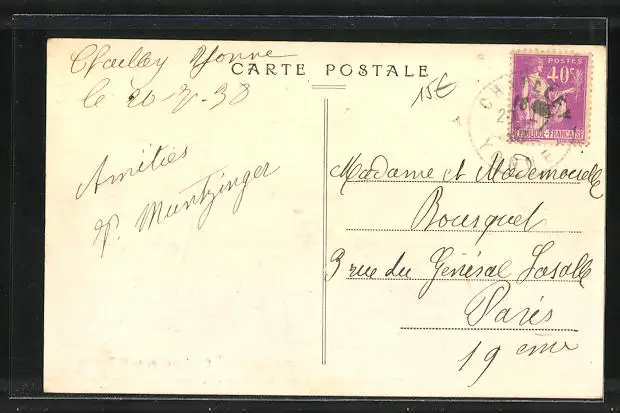 Chailley Yonne
CARTE POSTALE
le 20-7-38
15€
Amitiés
P. Muntzinger
POSTES
40c
REPUBLIQUE-FRANÇAISE
CHAILLEY
YONNE
Madame et Mademoiselle
Bousquet
3 rue du Général Lasalle
Paris
19eme